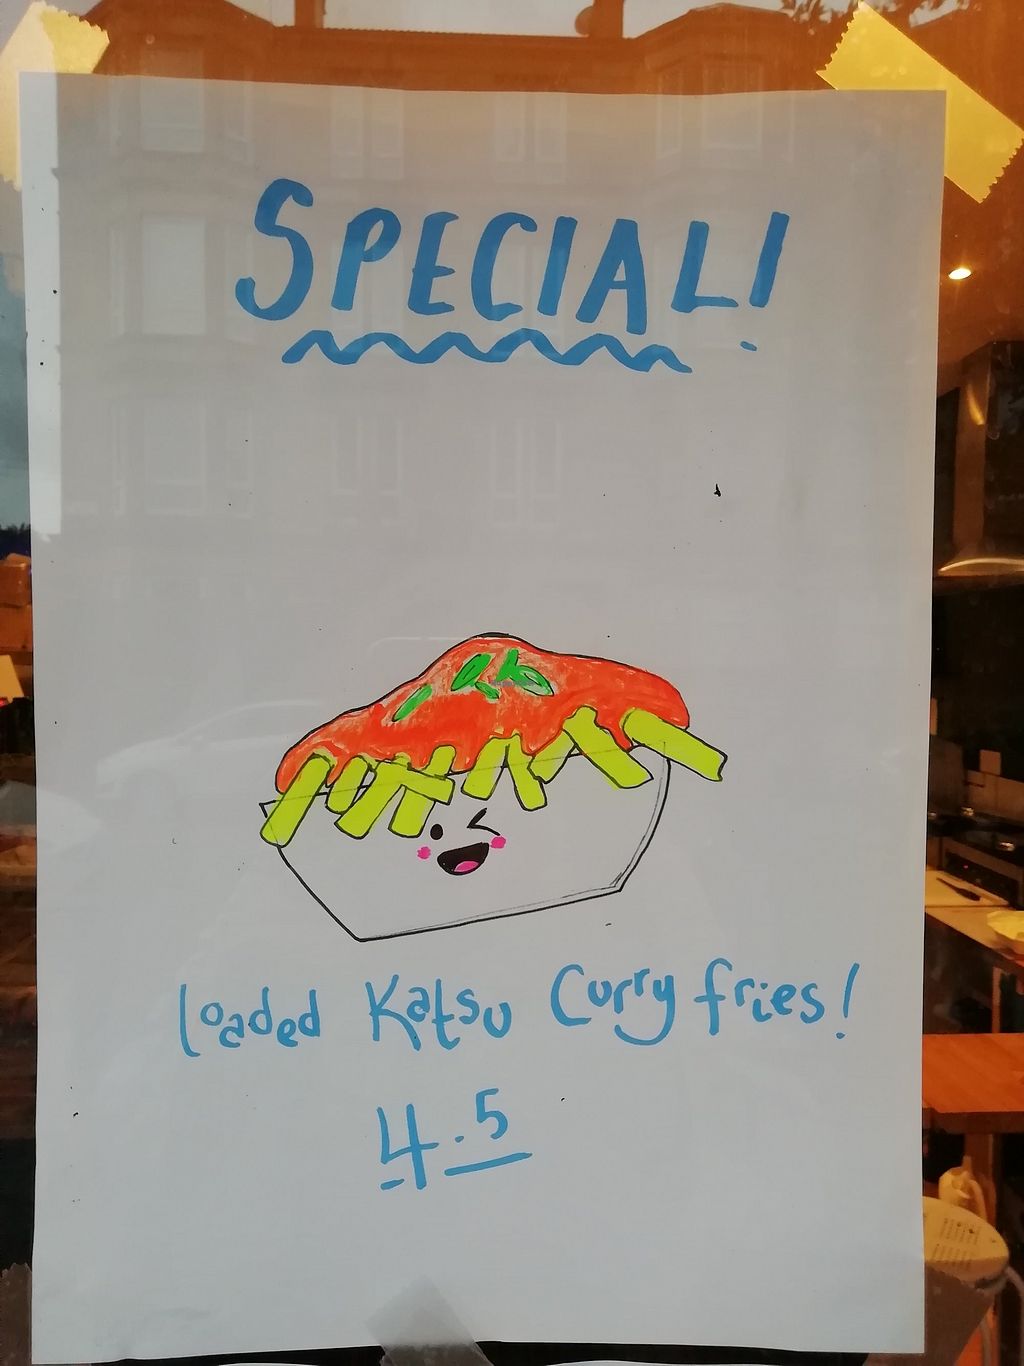 SPECIAL!
loaded Katsu Curry fries!
4.5